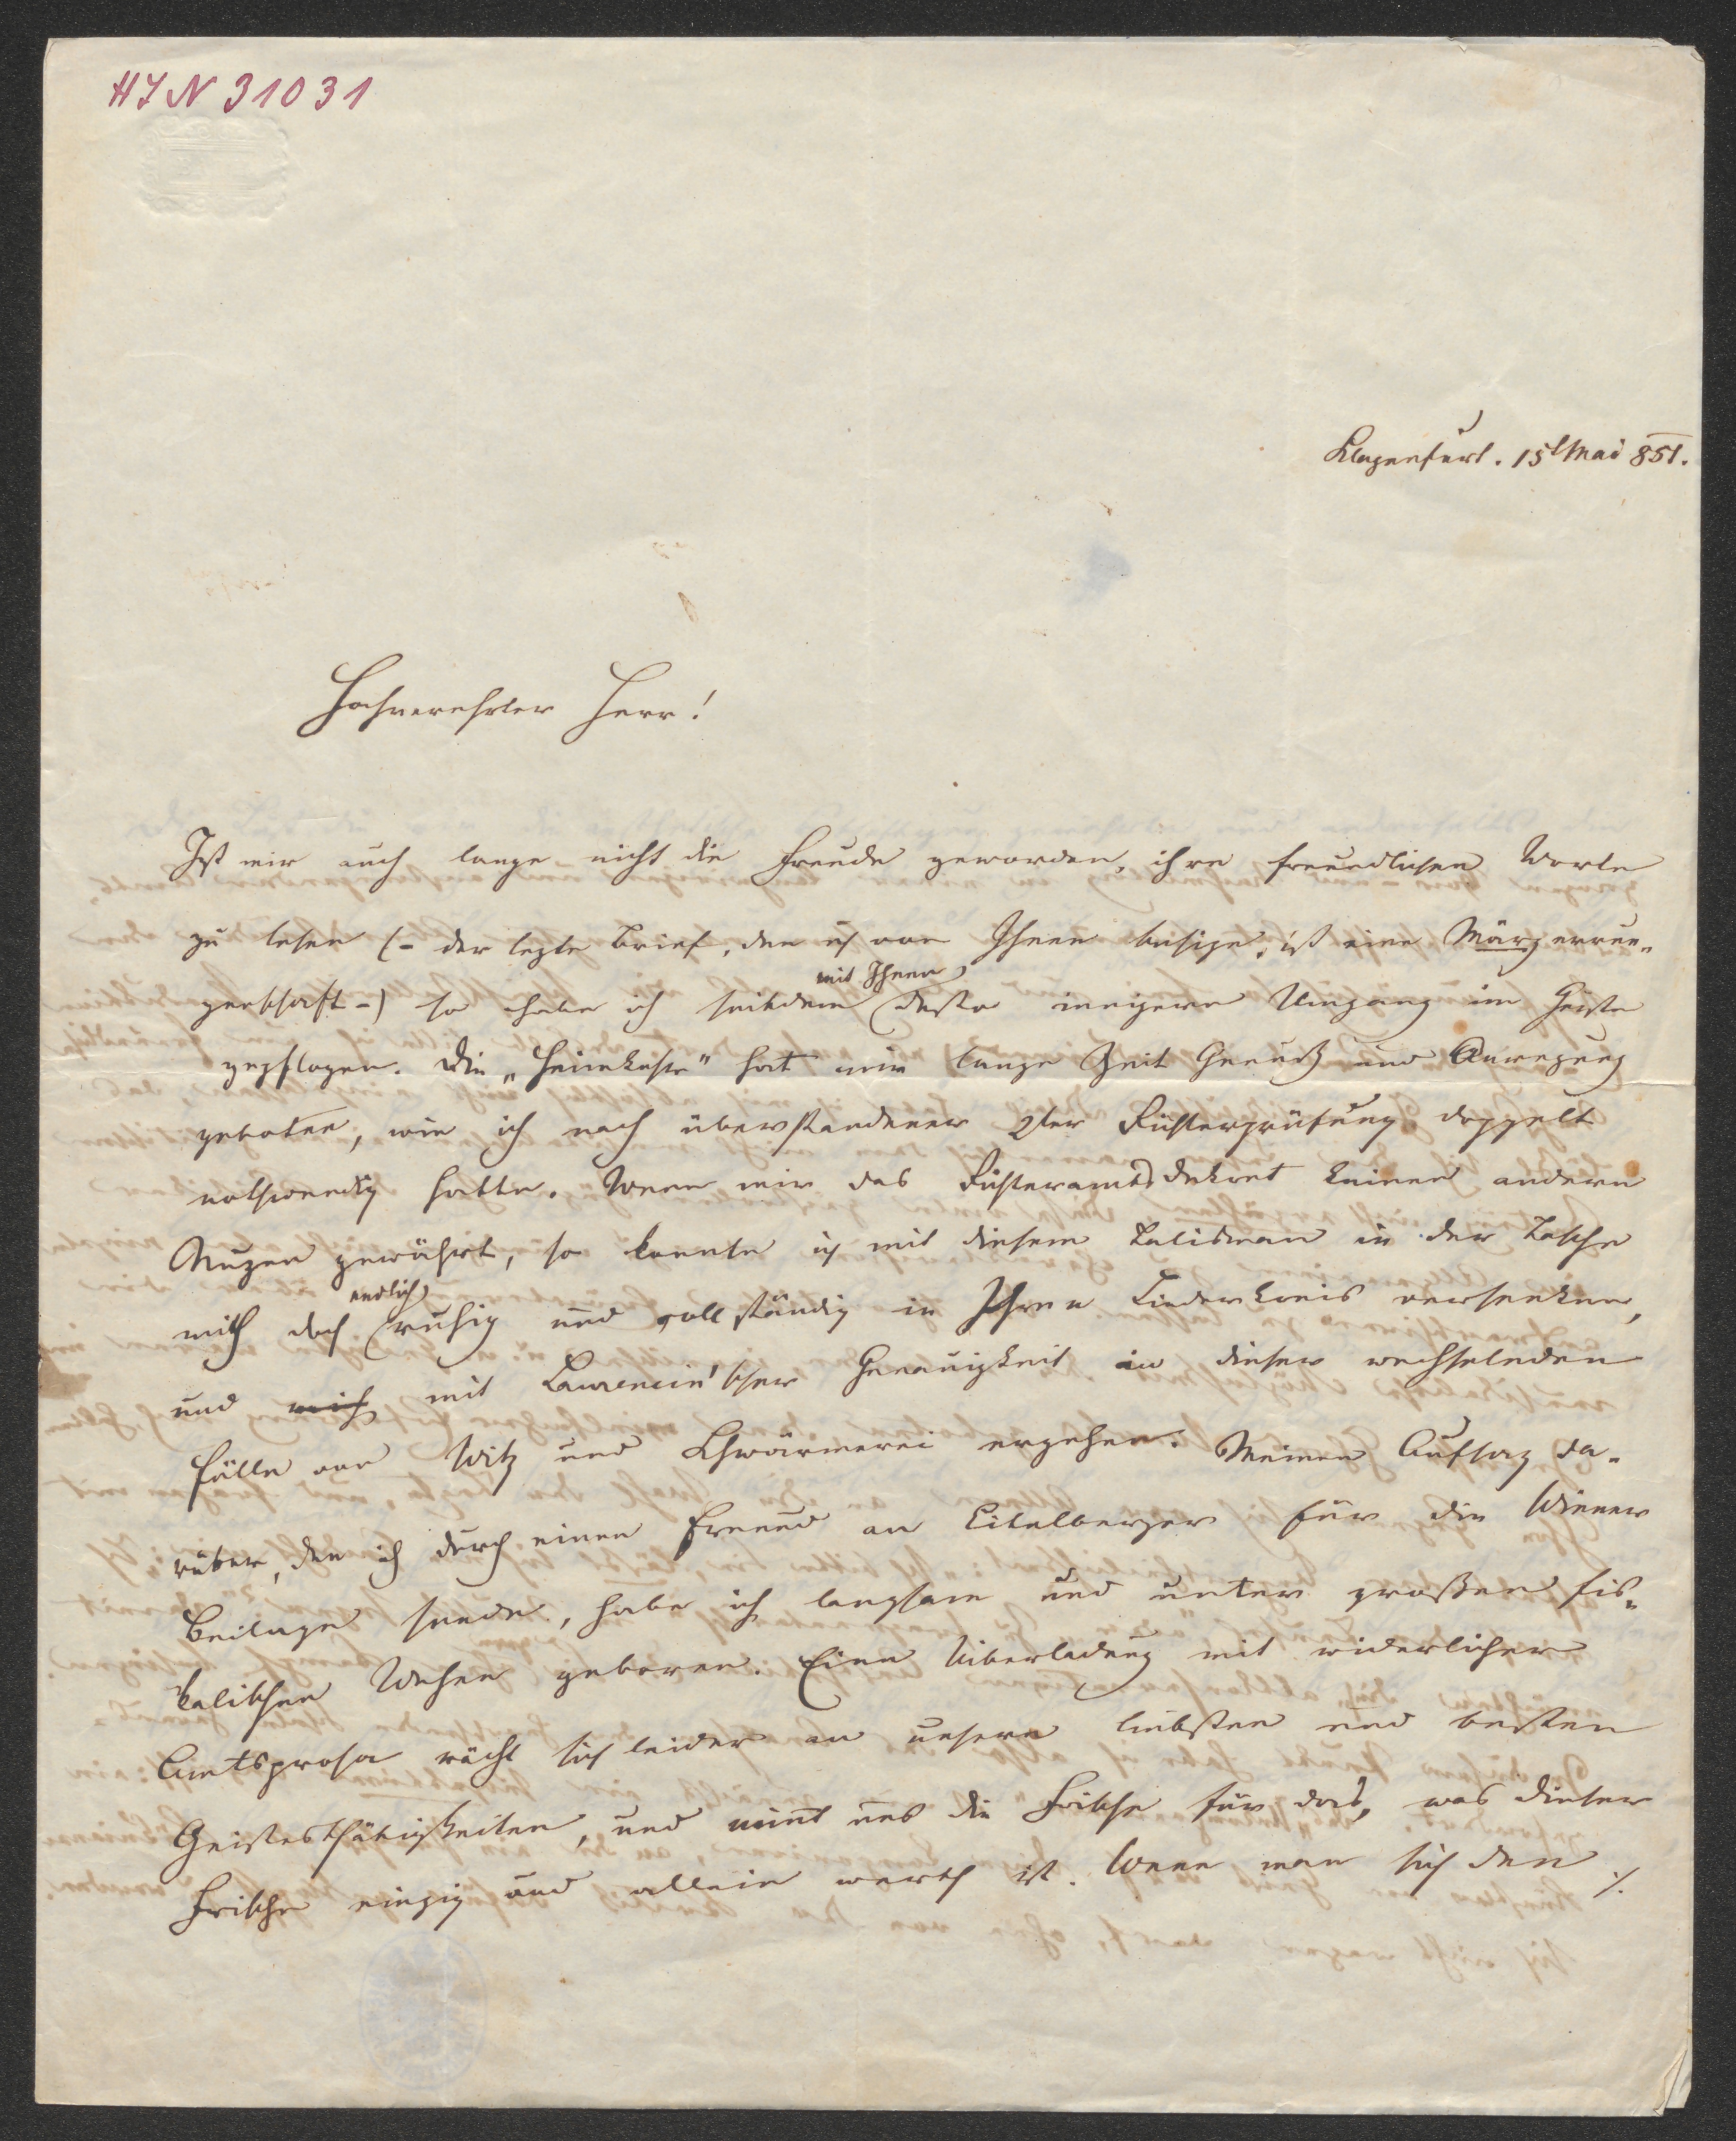 HIN 31031
Klagenfurt. 15t Mai 851.
Hochverehrter Herr!
Ist mir auch lange nicht die Freude geworden, ihre freundlichen Worte
zu lesen (– der lezte Brief, den ich von Ihnen besize, ist eine Märzerrun-
genschaft –) so habe ich seitdem mit Ihnen desto innigern Umgang im Geiste
gepflogen. Die „Heimkehr" hat mir lange Zeit Genuß und Anregung
geboten, wie ich nach überstandener 2ter Richterprüfung doppelt
nothwendig hatte. Wenn mir das Richteramtsdekret keinen andern
Nuzen gewährt, so konnte ich mit diesem Talisman in der Tasche
mich doch endlich ruhig und vollständig in Ihren Liederkreis versenken,
und mich mit Laurencin'scher Genauigkeit in dieser wechselnden
Fülle von Witz und Schwärmerei ergehen. Meinen Aufsaz da-
rüber, den ich durch einen Freund an Eitelberger für die Wiener
Beilage sende, habe ich langsam und unter großen fis-
kalischen Wehen geboren. Eine Überladung mit widerlicher
Amtsprosa rächt sich leider an unsern liebsten und besten
Geistesthätigkeiten, und nimt uns die Frische für das, was dieser
Frische einzig und allein werth ist. Wenn man sich den ./.